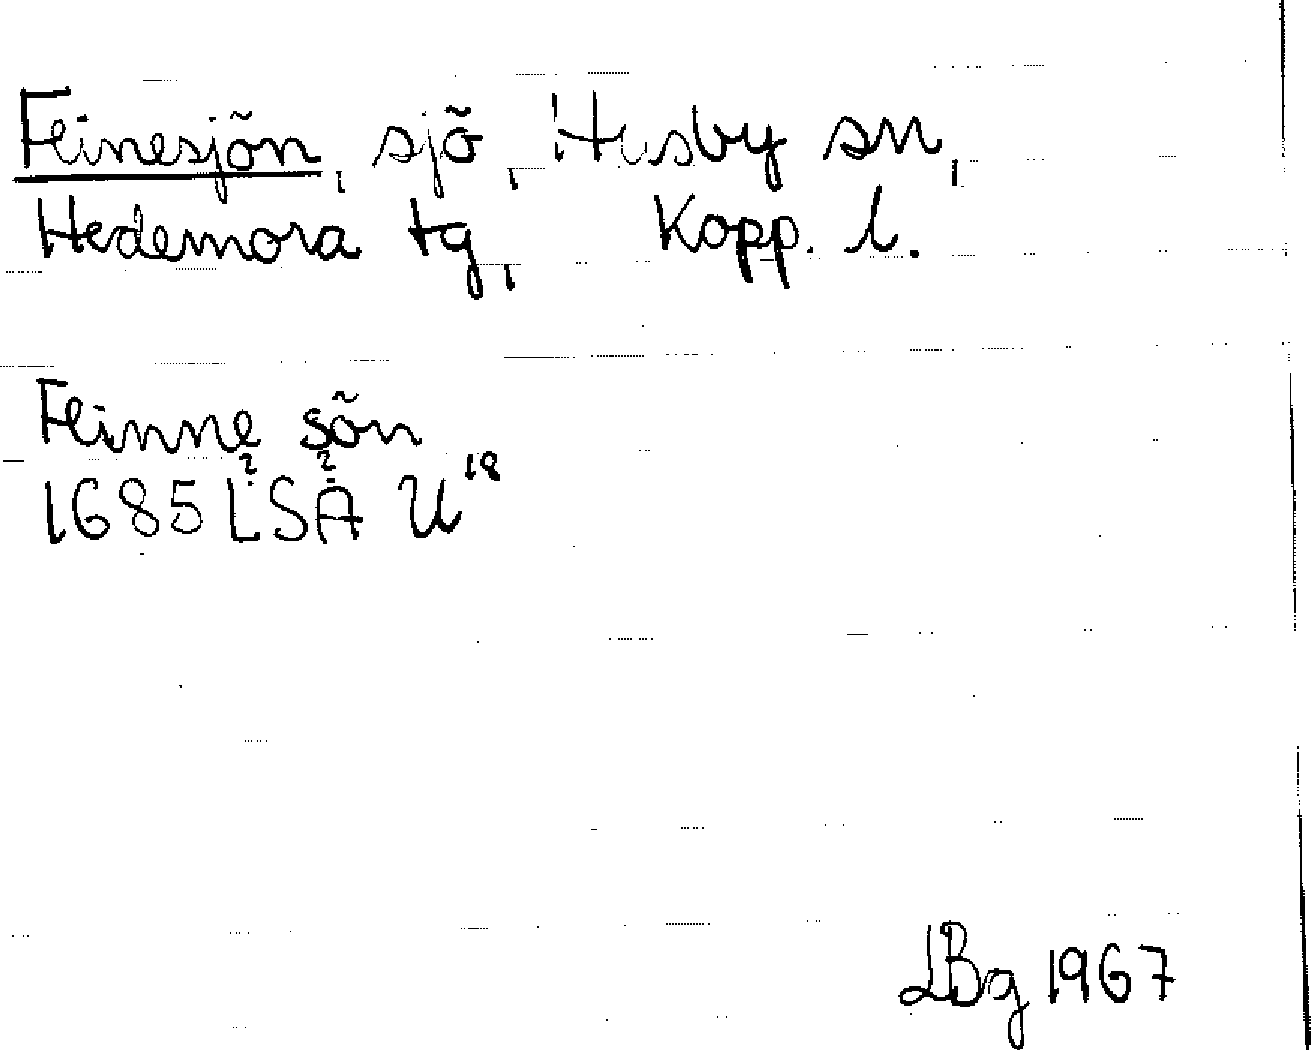 Flinesjön, sjö, Husby sn,
Hedemora tg, Kopp. l.
Flinne sön
? ?
1685 LSA U¹⁸
LBg 1967